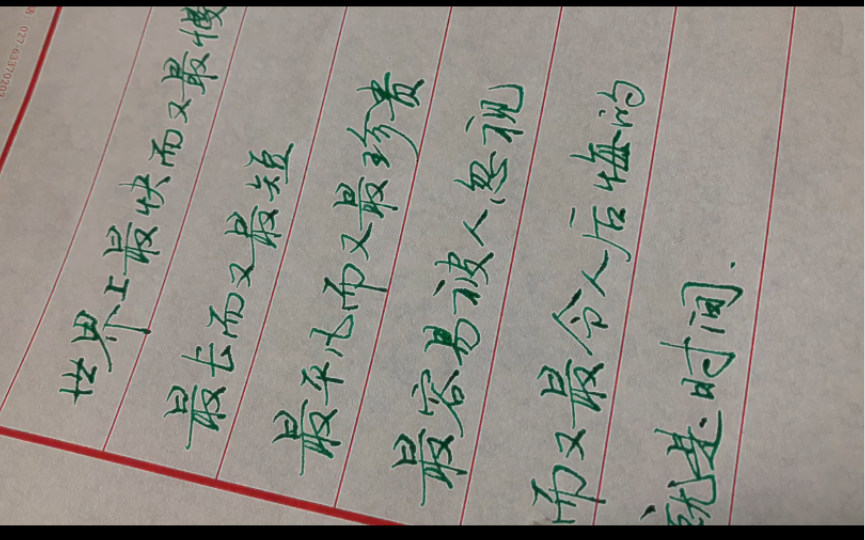 027-6337020
世界上最快而又最慢
最长而又最短
最平凡而又最珍贵
最容易被人忽视
而又最令人后悔的
就是时间.